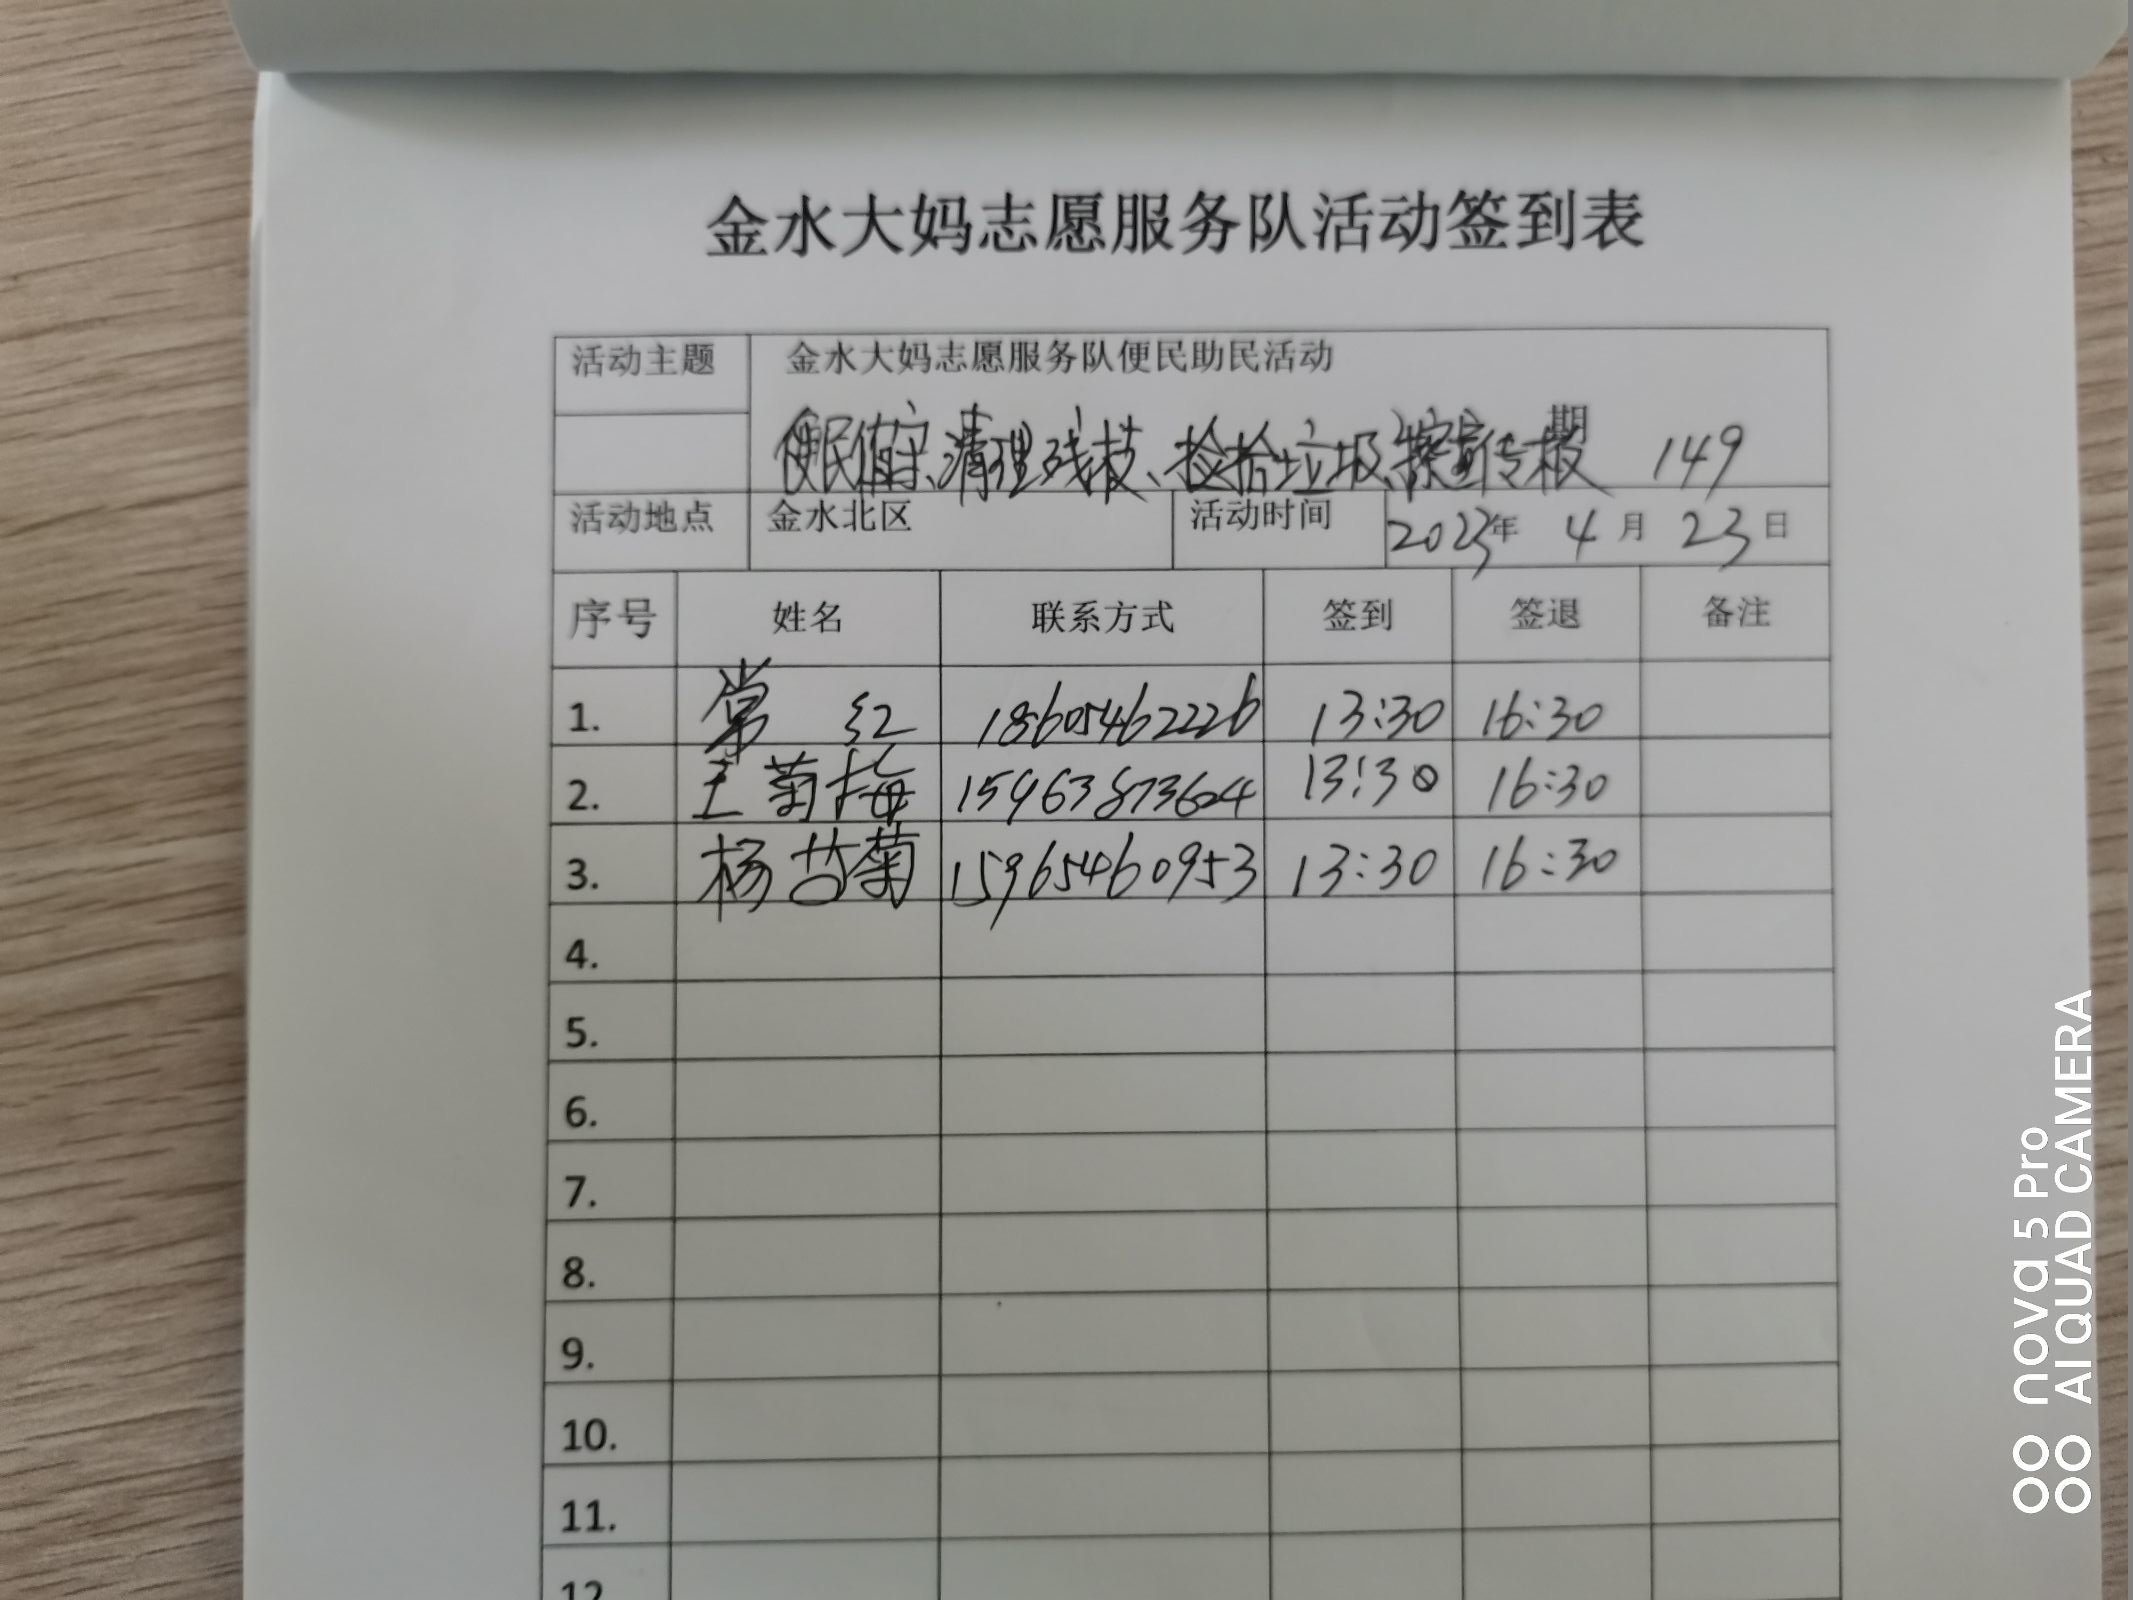 金水大妈志愿服务队活动签到表
活动主题 金水大妈志愿服务队便民助民活动
便民值守、清理残枝、捡拾垃圾、擦宣传栏 149
活动地点 金水北区 活动时间 2023年 4月 23日
序号 姓名 联系方式 签到 签退 备注
1. 常红 18605462226 13:30 16:30
2. 王菊梅 15963873624 13:30 16:30
3. 杨苫菊 15965460953 13:30 16:30
4.
5.
6.
7.
8.
9.
10.
11.
12
nova 5 Pro
AI QUAD CAMERA